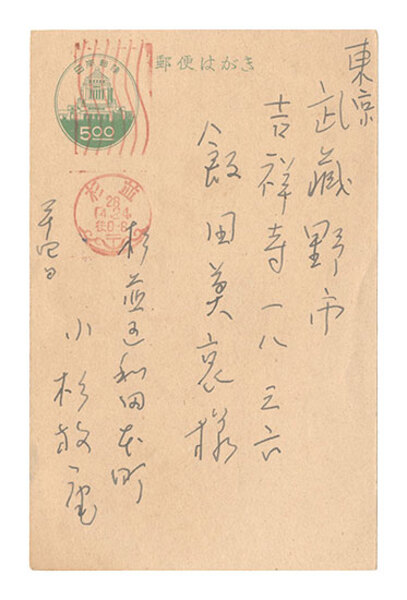 郵便はがき
日本郵便
5.00
杉並
28
4.24
0-6
東京
武蔵野市
吉祥寺一八三六
飯田莫哀様
杉並区和田本町
小杉放庵
廿四日